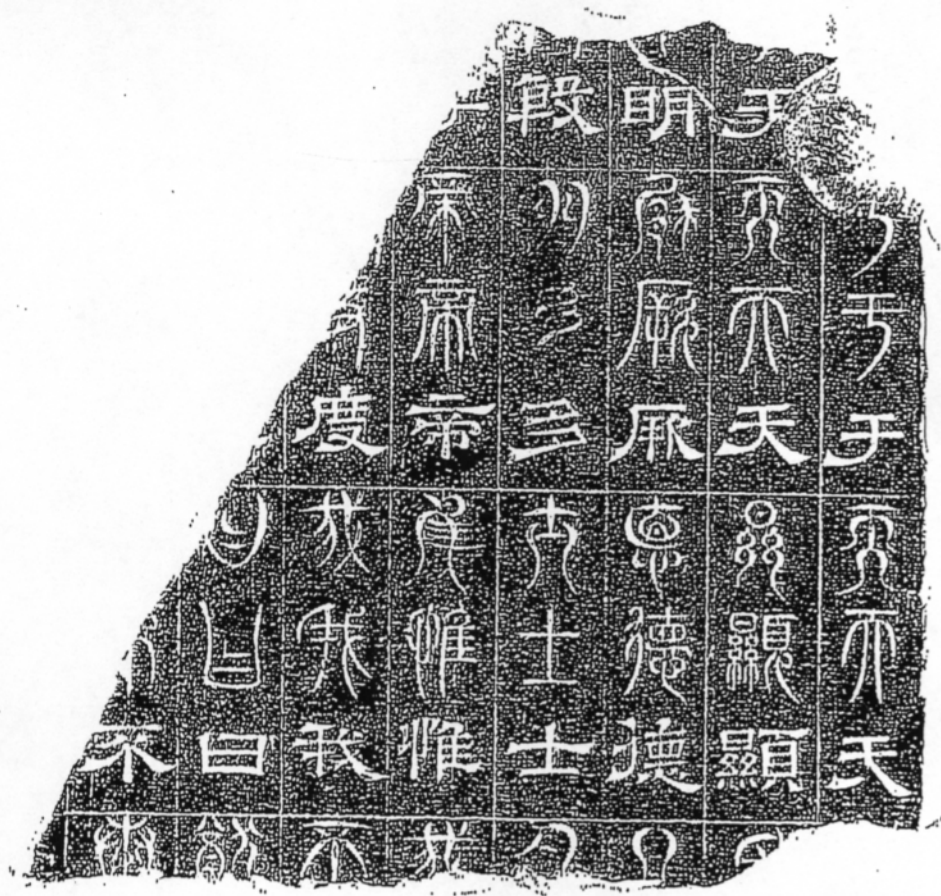 于于天天天
于天天天顯顯顯
明厥厥厥德德德
殷多多多士士士
帝帝帝惟惟惟
度我我我
曰曰曰
不